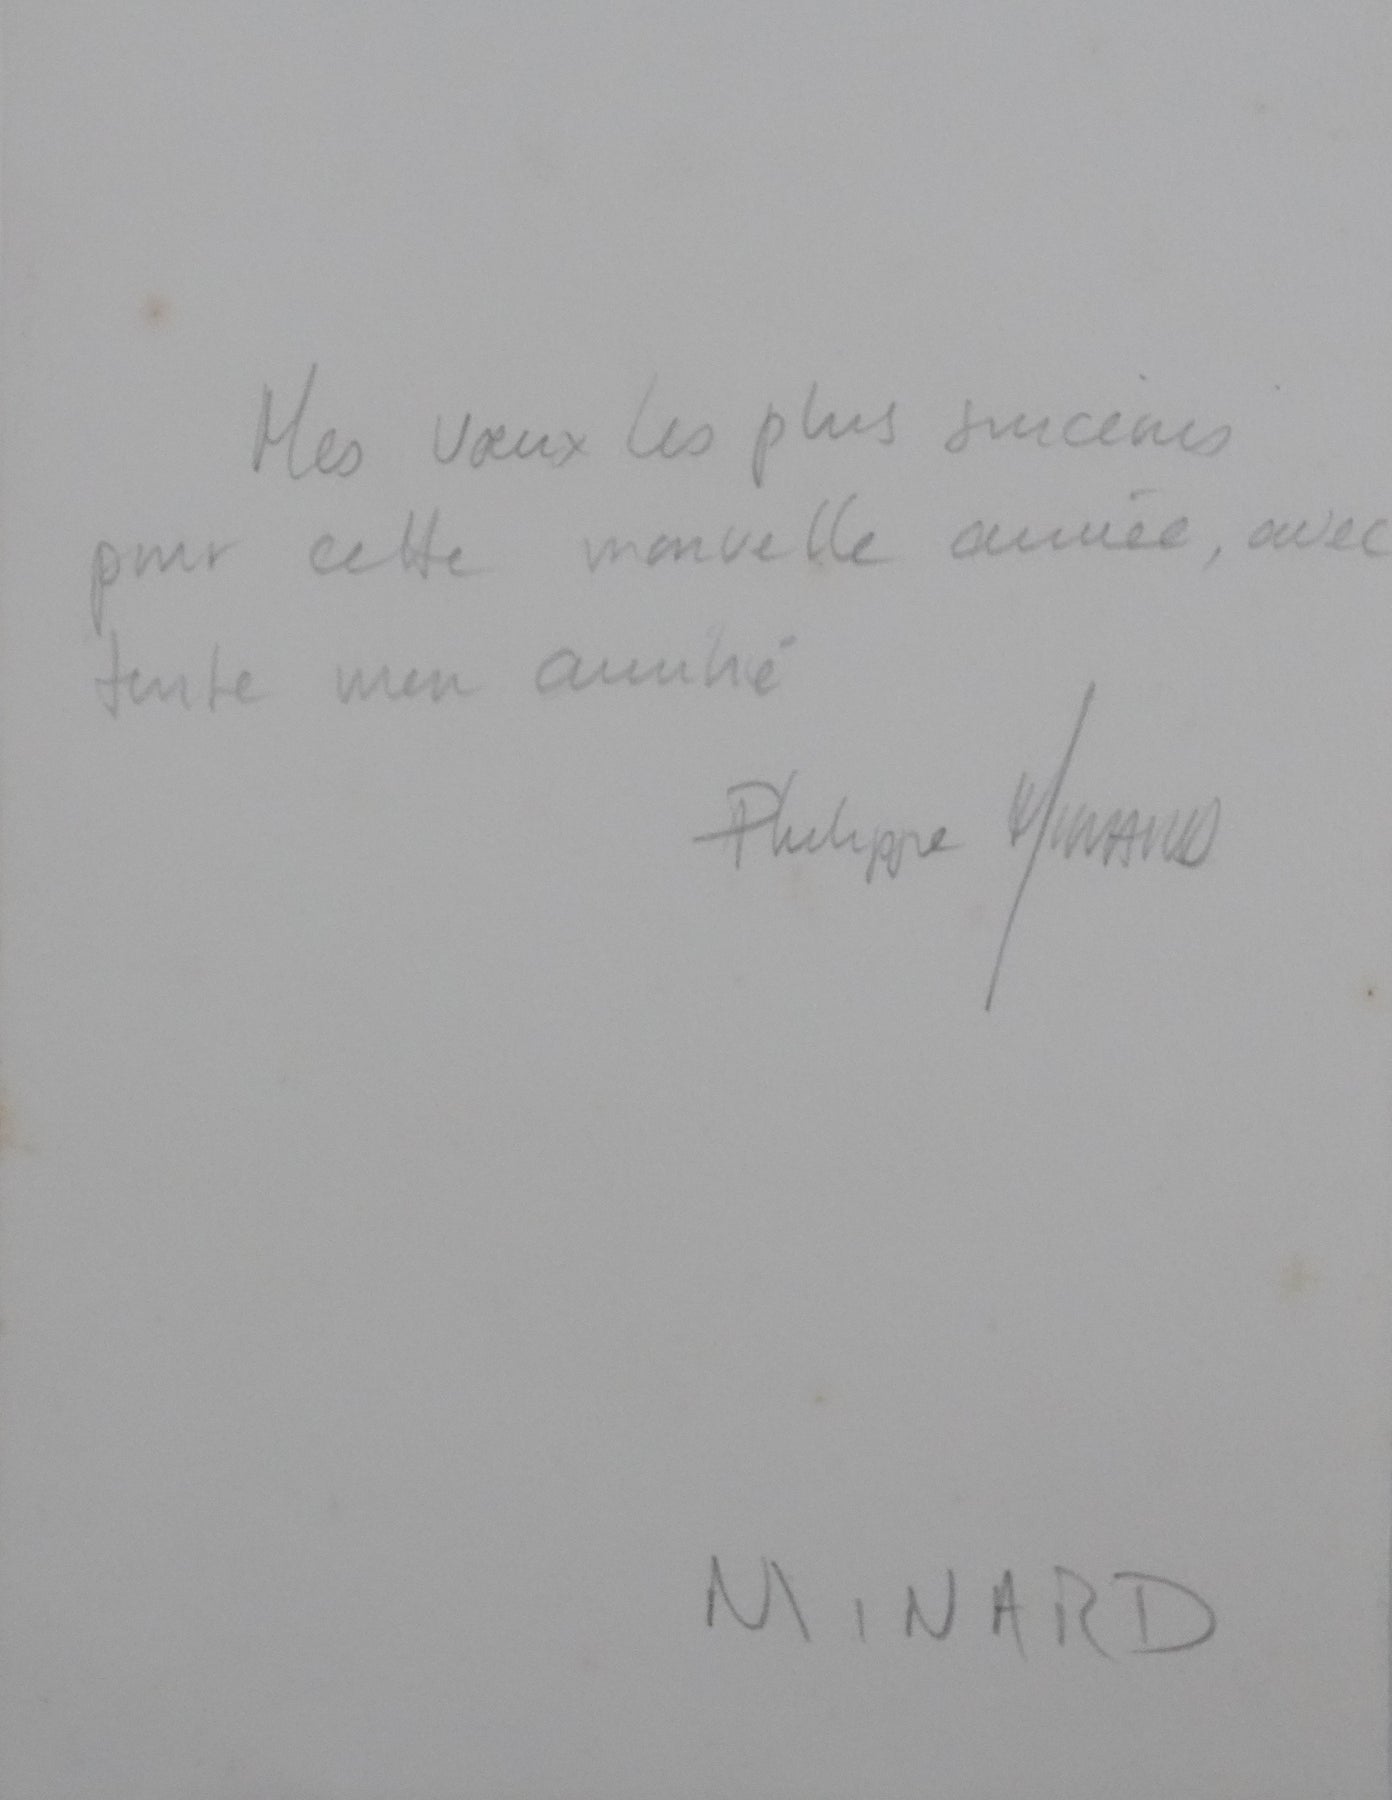 Mes vœux les plus sincères
pour cette nouvelle année, avec
toute mon amitié
Philippe MINARD
MINARD